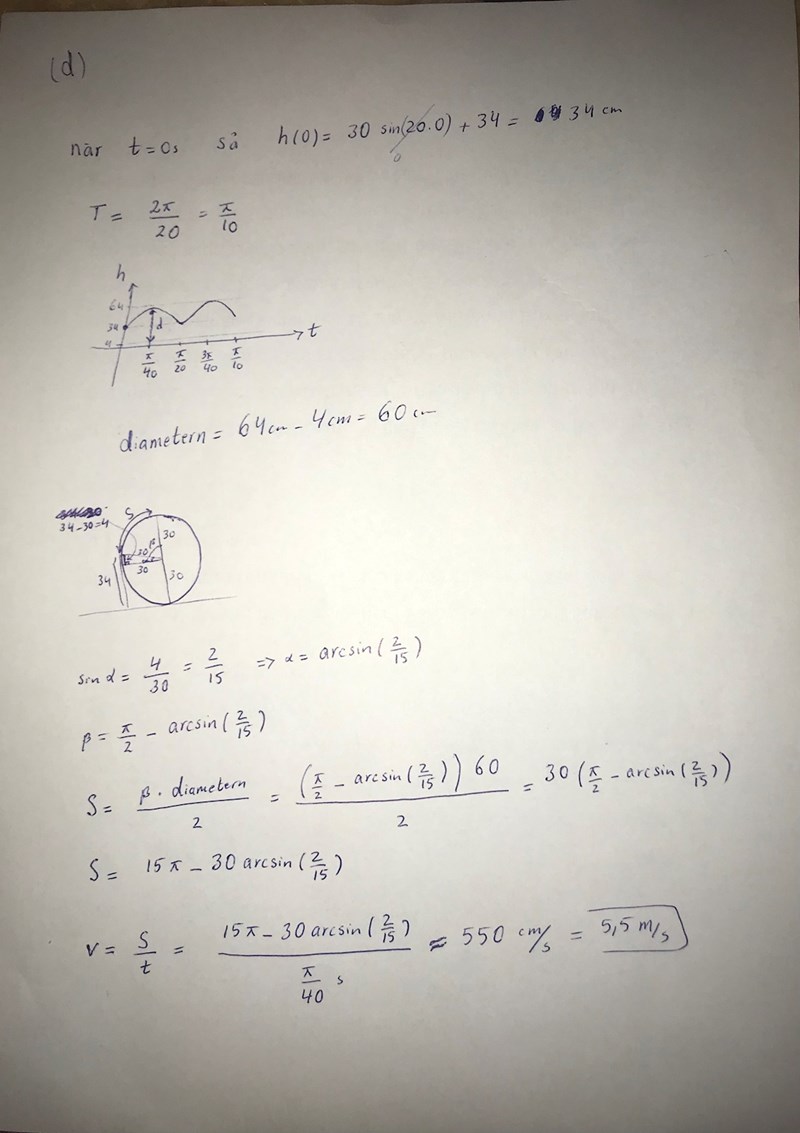 (d)
när t=0s så h(0)= 30 sin(20.0) + 34 = 34 cm
0
T = 2π/20 = π/10
h
64
34
4
d
t
π/40 π/20 3π/40 π/10
diametern = 64cm - 4cm = 60 cm
S
34-30=4
30
β
30
30
30
34
sin α = 4/30 = 2/15 => α = arcsin(2/15)
β = π/2 - arcsin(2/15)
S = β · diametern/2 = (π/2 - arcsin(2/15)) 60/2 = 30(π/2 - arcsin(2/15))
S = 15π - 30 arcsin(2/15)
V = S/t = 15π - 30 arcsin(2/15)/π/40 s ≈ 550 cm/s = 5,5 m/s